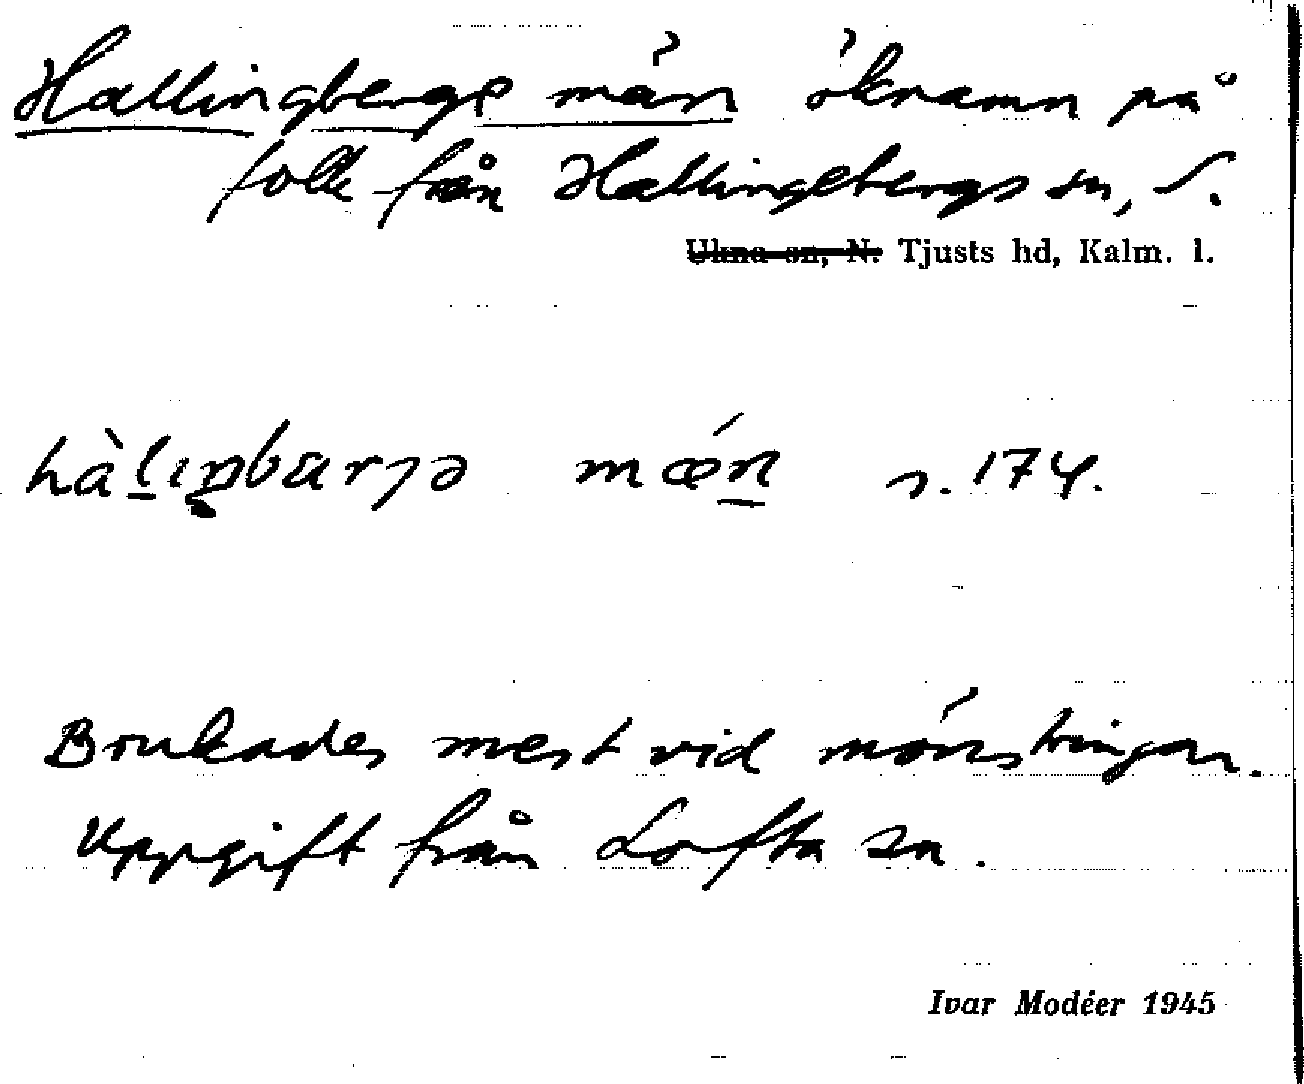 Hallingberge män öknamn på
folk från Hallingebergs sn, S.
Ukna sn, N. Tjusts hd, Kalm. l.
hàlıŋbærjə mǽn s. 174.
Brukades mest vid mönstringar.
Uppgift från Lofta sn.
Ivar Modéer 1945